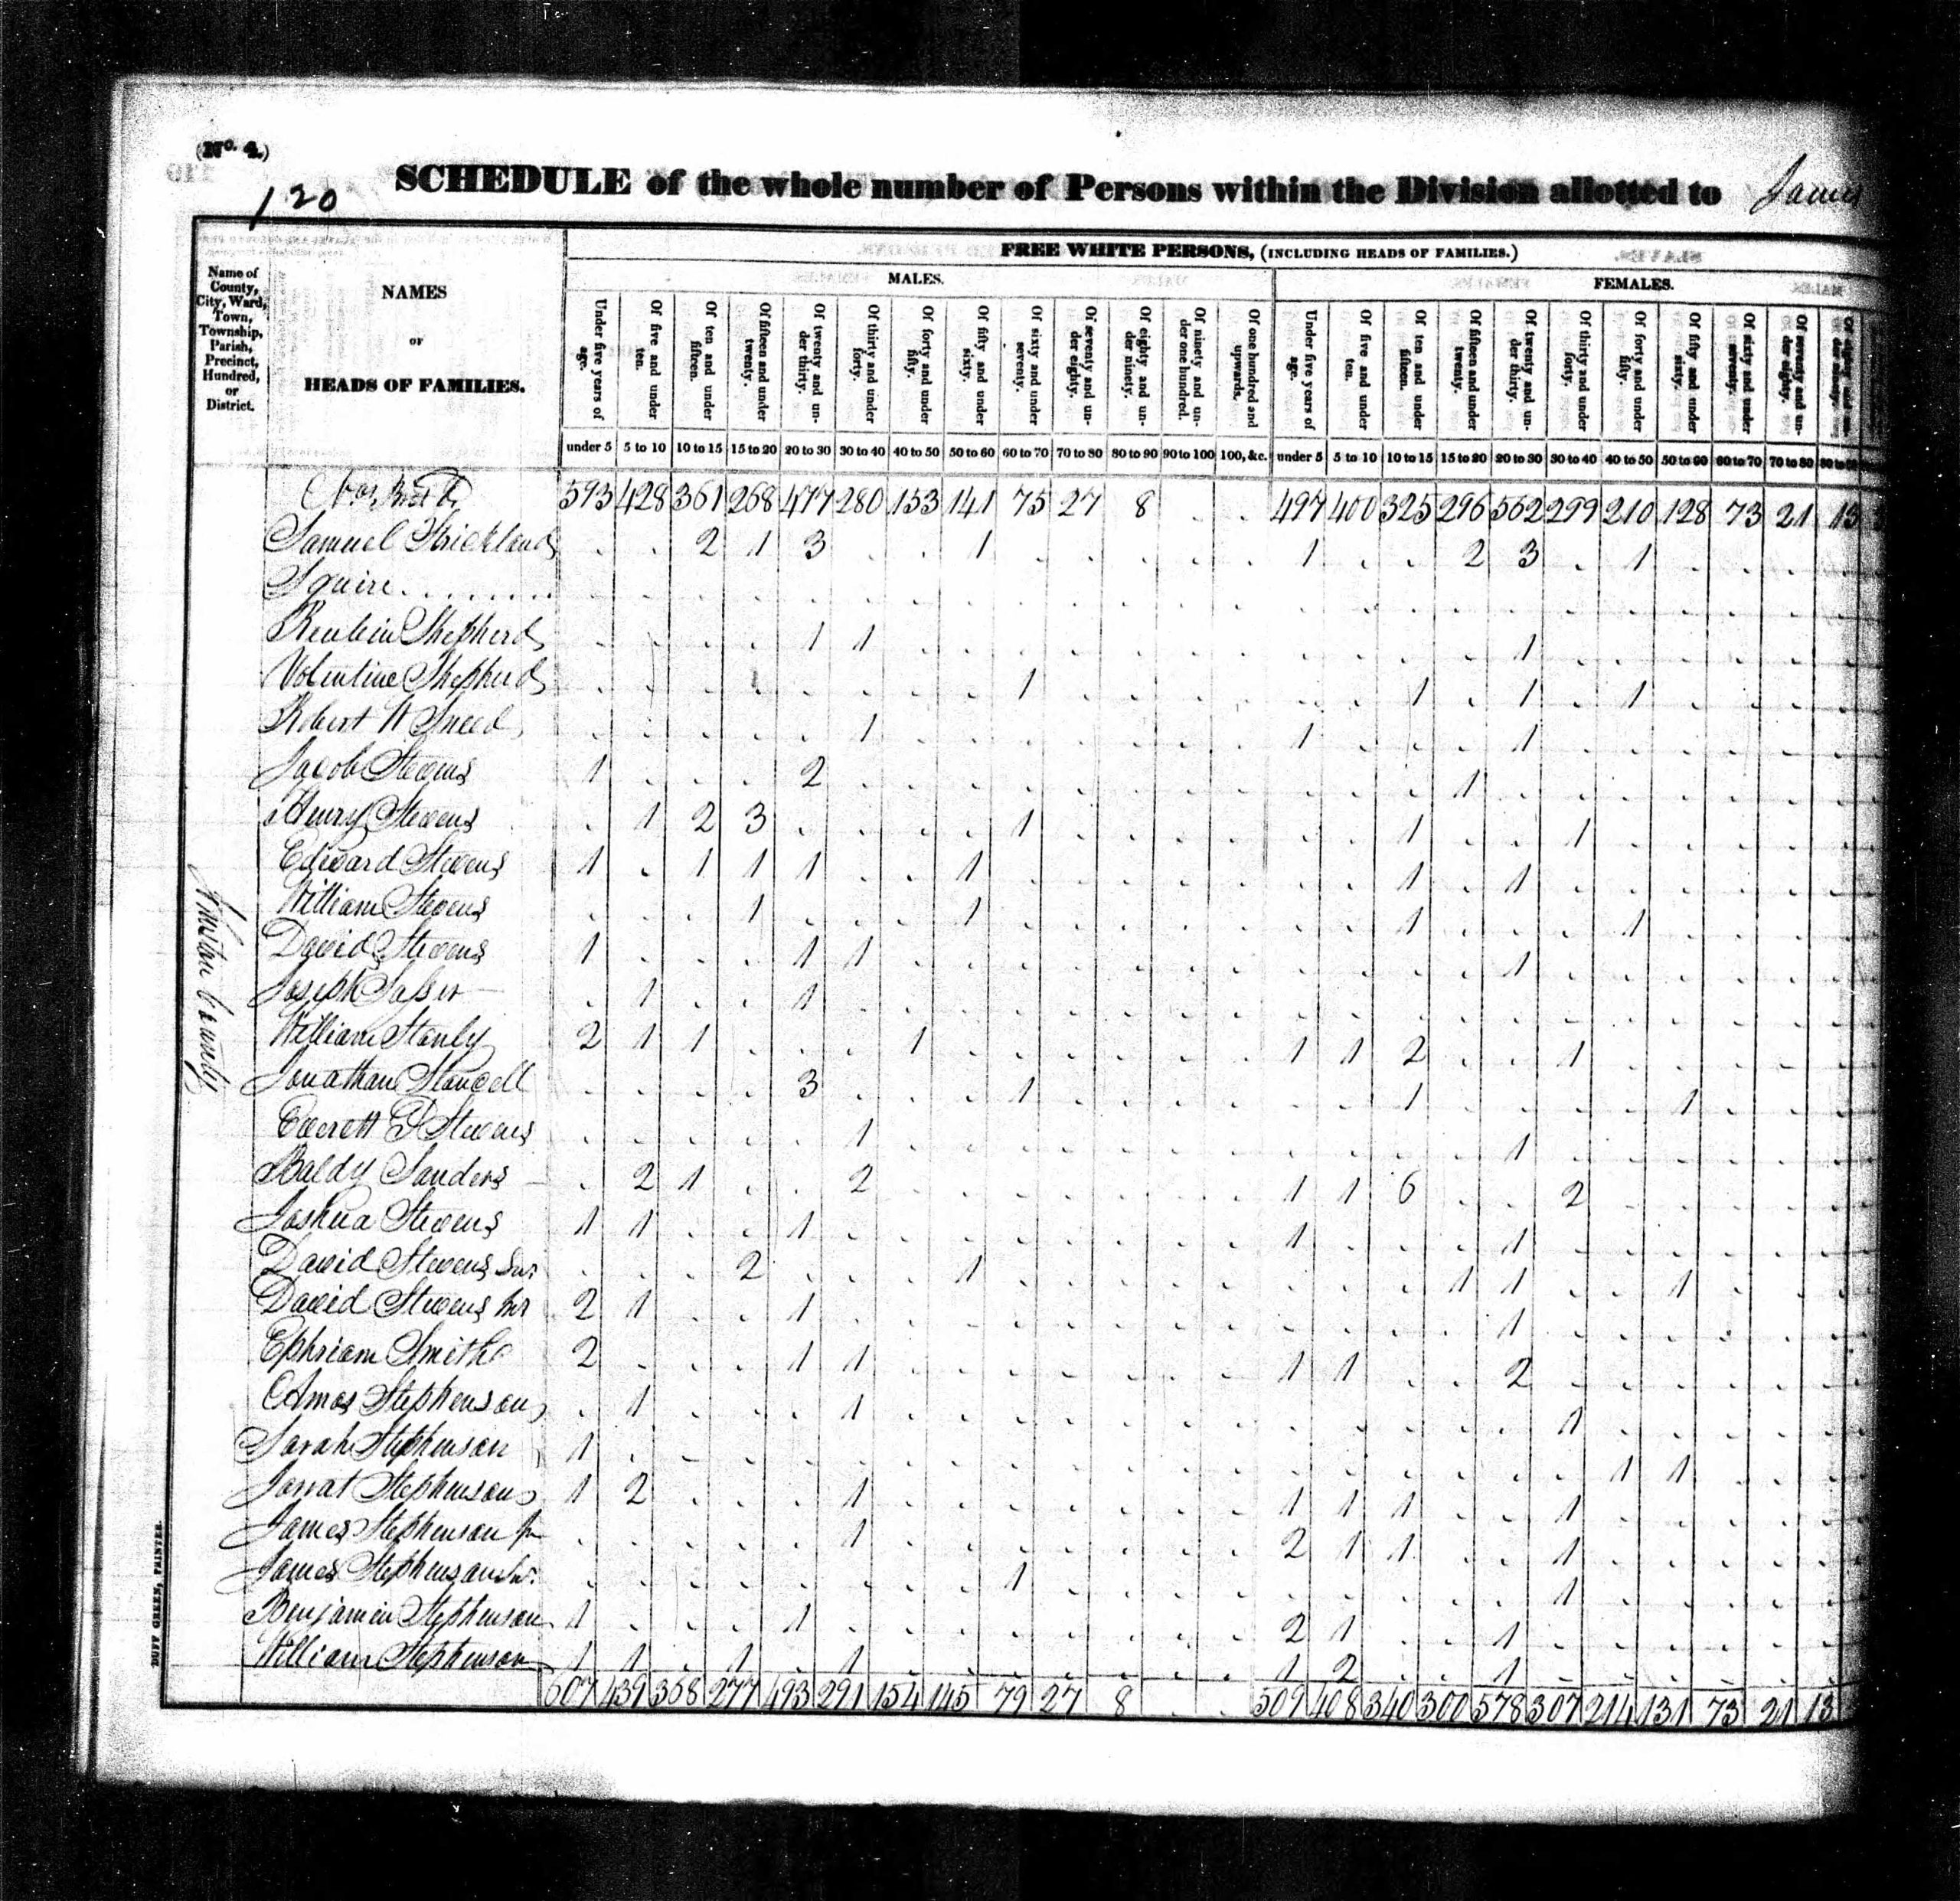 (No. 4.)
120
SCHEDULE of the whole number of Persons within the Division allotted to James
FREE WHITE PERSONS, (INCLUDING HEADS OF FAMILIES.)
MALES. FEMALES.
Name of County, City, Ward, Town, Township, Parish, Precinct, Hundred, or District.
NAMES
OF
HEADS OF FAMILIES.
Under five years of age. Of five and under ten. Of ten and under fifteen. Of fifteen and under twenty. Of twenty and under thirty. Of thirty and under forty. Of forty and under fifty. Of fifty and under sixty. Of sixty and under seventy. Of seventy and under eighty. Of eighty and under ninety. Of ninety and under one hundred. Of one hundred and upwards. Under five years of age. Of five and under ten. Of ten and under fifteen. Of fifteen and under twenty. Of twenty and under thirty. Of thirty and under forty. Of forty and under fifty. Of fifty and under sixty. Of sixty and under seventy. Of seventy and under eighty.
under 5 5 to 10 10 to 15 15 to 20 20 to 30 30 to 40 40 to 50 50 to 60 60 to 70 70 to 80 80 to 90 90 to 100 100, &c. under 5 5 to 10 10 to 15 15 to 20 20 to 30 30 to 40 40 to 50 50 to 60 60 to 70 70 to 80
593 428 361 268 477 280 153 141 75 27 8 . . 497 400 325 296 562 299 210 128 73 21 13
Samuel Strickland . . 2 1 3 . . 1 . . . . . 1 . . 2 3 . 1 . . .
Squire . . . . . . . .
Reubin Shepherd . . . . 1 1 . . . . . . . . . . . 1 . . . . .
Volentine Shepherd . . . 1 . . . . 1 . . . . . . 1 . 1 . 1 . . .
Robert W Sneed . . . . . 1 . . . . . . . 1 . . . 1 . . . . .
Jacob Stevens 1 . . . 2 . . . . . . . . . . . 1 . . . . . .
Henry Stevens . 1 2 3 . . . . 1 . . . . . . 1 . . 1 . . . .
Edward Stevens 1 . 1 1 1 . . 1 . . . . . . . 1 . 1 . . . . .
William Stevens . . . 1 . . . 1 . . . . . . . 1 . . . 1 . . .
David Stevens 1 . . . 1 1 . . . . . . . . . . . 1 . . . . .
Joseph Sasser . 1 . . 1 . . . . . . . . . . . . . . . . . .
William Stanly 2 1 1 . . . 1 . . . . . . 1 1 2 . . 1 . . . .
Jonathan Stancell . . . . 3 . . . 1 . . . . . . 1 . . . . 1 . .
Everett P Stevens . . . . . 1 . . . . . . . . . . . 1 . . . . .
Baldy Sanders . 2 1 . . 2 . . . . . . . 1 1 6 . . 2 . . . .
Joshua Stevens 1 1 . . 1 . . . . . . . . 1 . . . 1 . . . . .
David Stevens Snr . . . 2 . . . 1 . . . . . . . . 1 1 . . 1 . .
David Stevens Jnr 2 1 . . 1 . . . . . . . . . . . . 1 . . . . .
Ephriam Smith 2 . . . 1 1 . . . . . . . 1 1 . . 2 . . . . .
Amos Stephenson . 1 . . . 1 . . . . . . . . . . . . 1 . . . .
Sarah Stephenson 1 . . . . . . . . . . . . . . . . . . 1 1 . .
Jonat Stephenson 1 2 . . . 1 . . . . . . . 1 1 1 . . 1 . . . .
James Stephenson Jn . . . . . 1 . . . . . . . 2 1 1 . . 1 . . . .
James Stephenson Snr. . . . . . . . . 1 . . . . . . . . . 1 . . . .
Benjamin Stephenson 1 . . . 1 . . . . . . . . 2 1 . . 1 . . . . .
William Stephenson 1 1 . 1 . 1 . . . . . . . 1 2 . . 1 . . . . .
607 439 368 277 493 291 154 145 79 27 8 . . 509 408 340 300 578 307 214 131 73 21 13
Johnston County
DUFF GREEN, PRINTER.